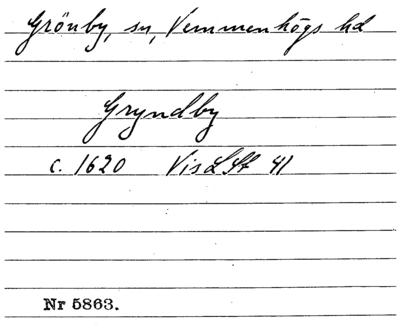 Grönby, sn, Vemmenhögs hd
Gryndby
c. 1620 VisLSt 41
Nr 5863.